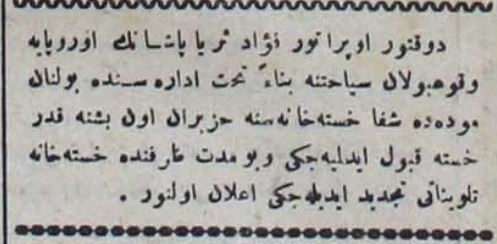 دوقتور اوپراتور فؤاد ثریا پاشانك اوروپایه
وقوعبولان سیاحتنه بناءً تحت اداره سنده بولنان
موده ده شفا خسته خانه سنه حزیران اون بشنه قدر
خسته قبول ایدلیه جكی و بو مدت ظرفنده خسته خانه
تلویناتی تجدید ایدیله جكی اعلان اولنور .